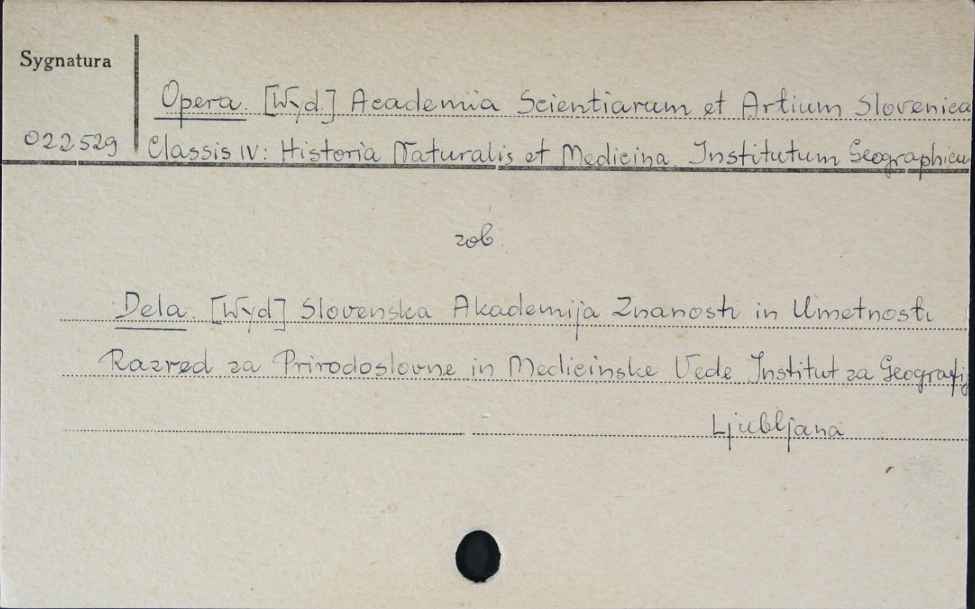 Sygnatura
Opera. [Wyd.] Academia Scientiarum et Artium Slovenica
022529 Classis IV: Historia Naturalis et Medicina. Institutum Geographicu
zob.
Dela. [Wyd] Slovenska Akademija Znanosti in Umetnosti
Razred za Prirodoslovne in Medicinske Vede Institut za Geografij
Ljubljana